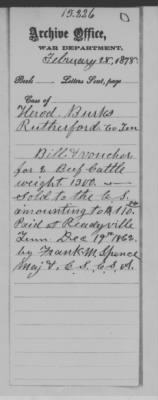 15.226
Archive Office,
WAR DEPARTMENT,
February 28, 1878.
Book Letters Sent, page
Case of
Herod, Burks
Rutherford Co Ten
Bill & voucher
for 2 Beef Cattle
weight 1300
sold to the C, S,
amounting to $ 110.
Paid at Readyville
Tenn. Dec 19th 1862.
by Frank M. Spence
Maj & C. S., C, S, A.